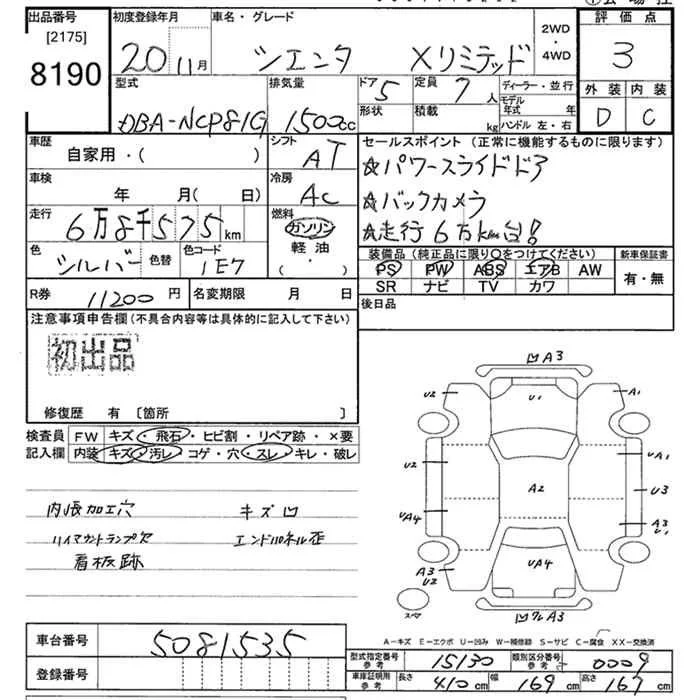 出品番号 [2175] 8190
初度登録年月 20 11月
車名・グレード シエンタ Xリミテッド
2WD・4WD
評価点 3
外装 D 内装 C
型式 DBA-NCP81G
排気量 1500cc
ドア 5 形状
定員 7人 積載 kg
ディーラー・並行
モデル年式 年
ハンドル 左・右
車歴 自家用・( )
シフト AT
セールスポイント (正常に機能するものに限ります)
☆パワースライドドア
☆バックカメラ
☆走行6万km台!
車検 年 月(日)
冷房 AC
走行 6万8千575km
燃料 ガソリン 軽油 ・( )
色 シルバー 色替 色コード 1E7
装備品 (純正品に限り○をつけてください)
PS PW ABS エアB AW
SR ナビ TV カワ
新車保証書 有・無
R券 11200円 名変期限 月 日
後日品
注意事項申告欄 (不具合内容等は具体的に記入して下さい)
初出品
修復歴 有 [箇所 ]
検査員記入欄
FW キズ・飛石・ヒビ割・リペア跡・×要
内装 キズ・汚レ・コゲ・穴・スレ・キレ・破レ
内張加工穴 キズ凹
ハイマウントランプ欠 エンドパネル歪
看板跡
凹A3
U2 U1 A1
U2 UA1
A2 U3
UA4 A3 U1
A3 U2 UA4
スペア
凹ワレA3
A-キズ E-エクボ U-凹み W-補修跡 S-サビ C-腐食 XX-交換済
車台番号 5081535
登録番号
型式指定番号 参考 15130 類別区分番号 参考 0009
車庫証明用 参考 長さ 410cm 幅 169cm 高さ 167cm